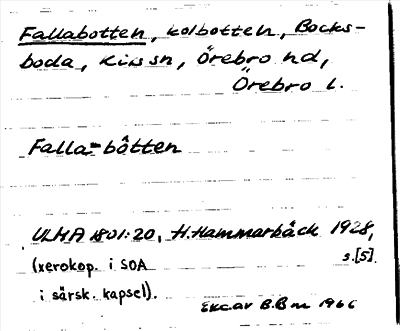 Fallabotten, kolbotten, Bocks-
boda, Kils sn, Örebro hd,
Örebro l.
Falla=båtten
ULMA 1801:20, H. Hammarbäck 1928,
(xerokop. i SOA s.[5].
i särsk. kapsel).
Excar B.Bm 1966